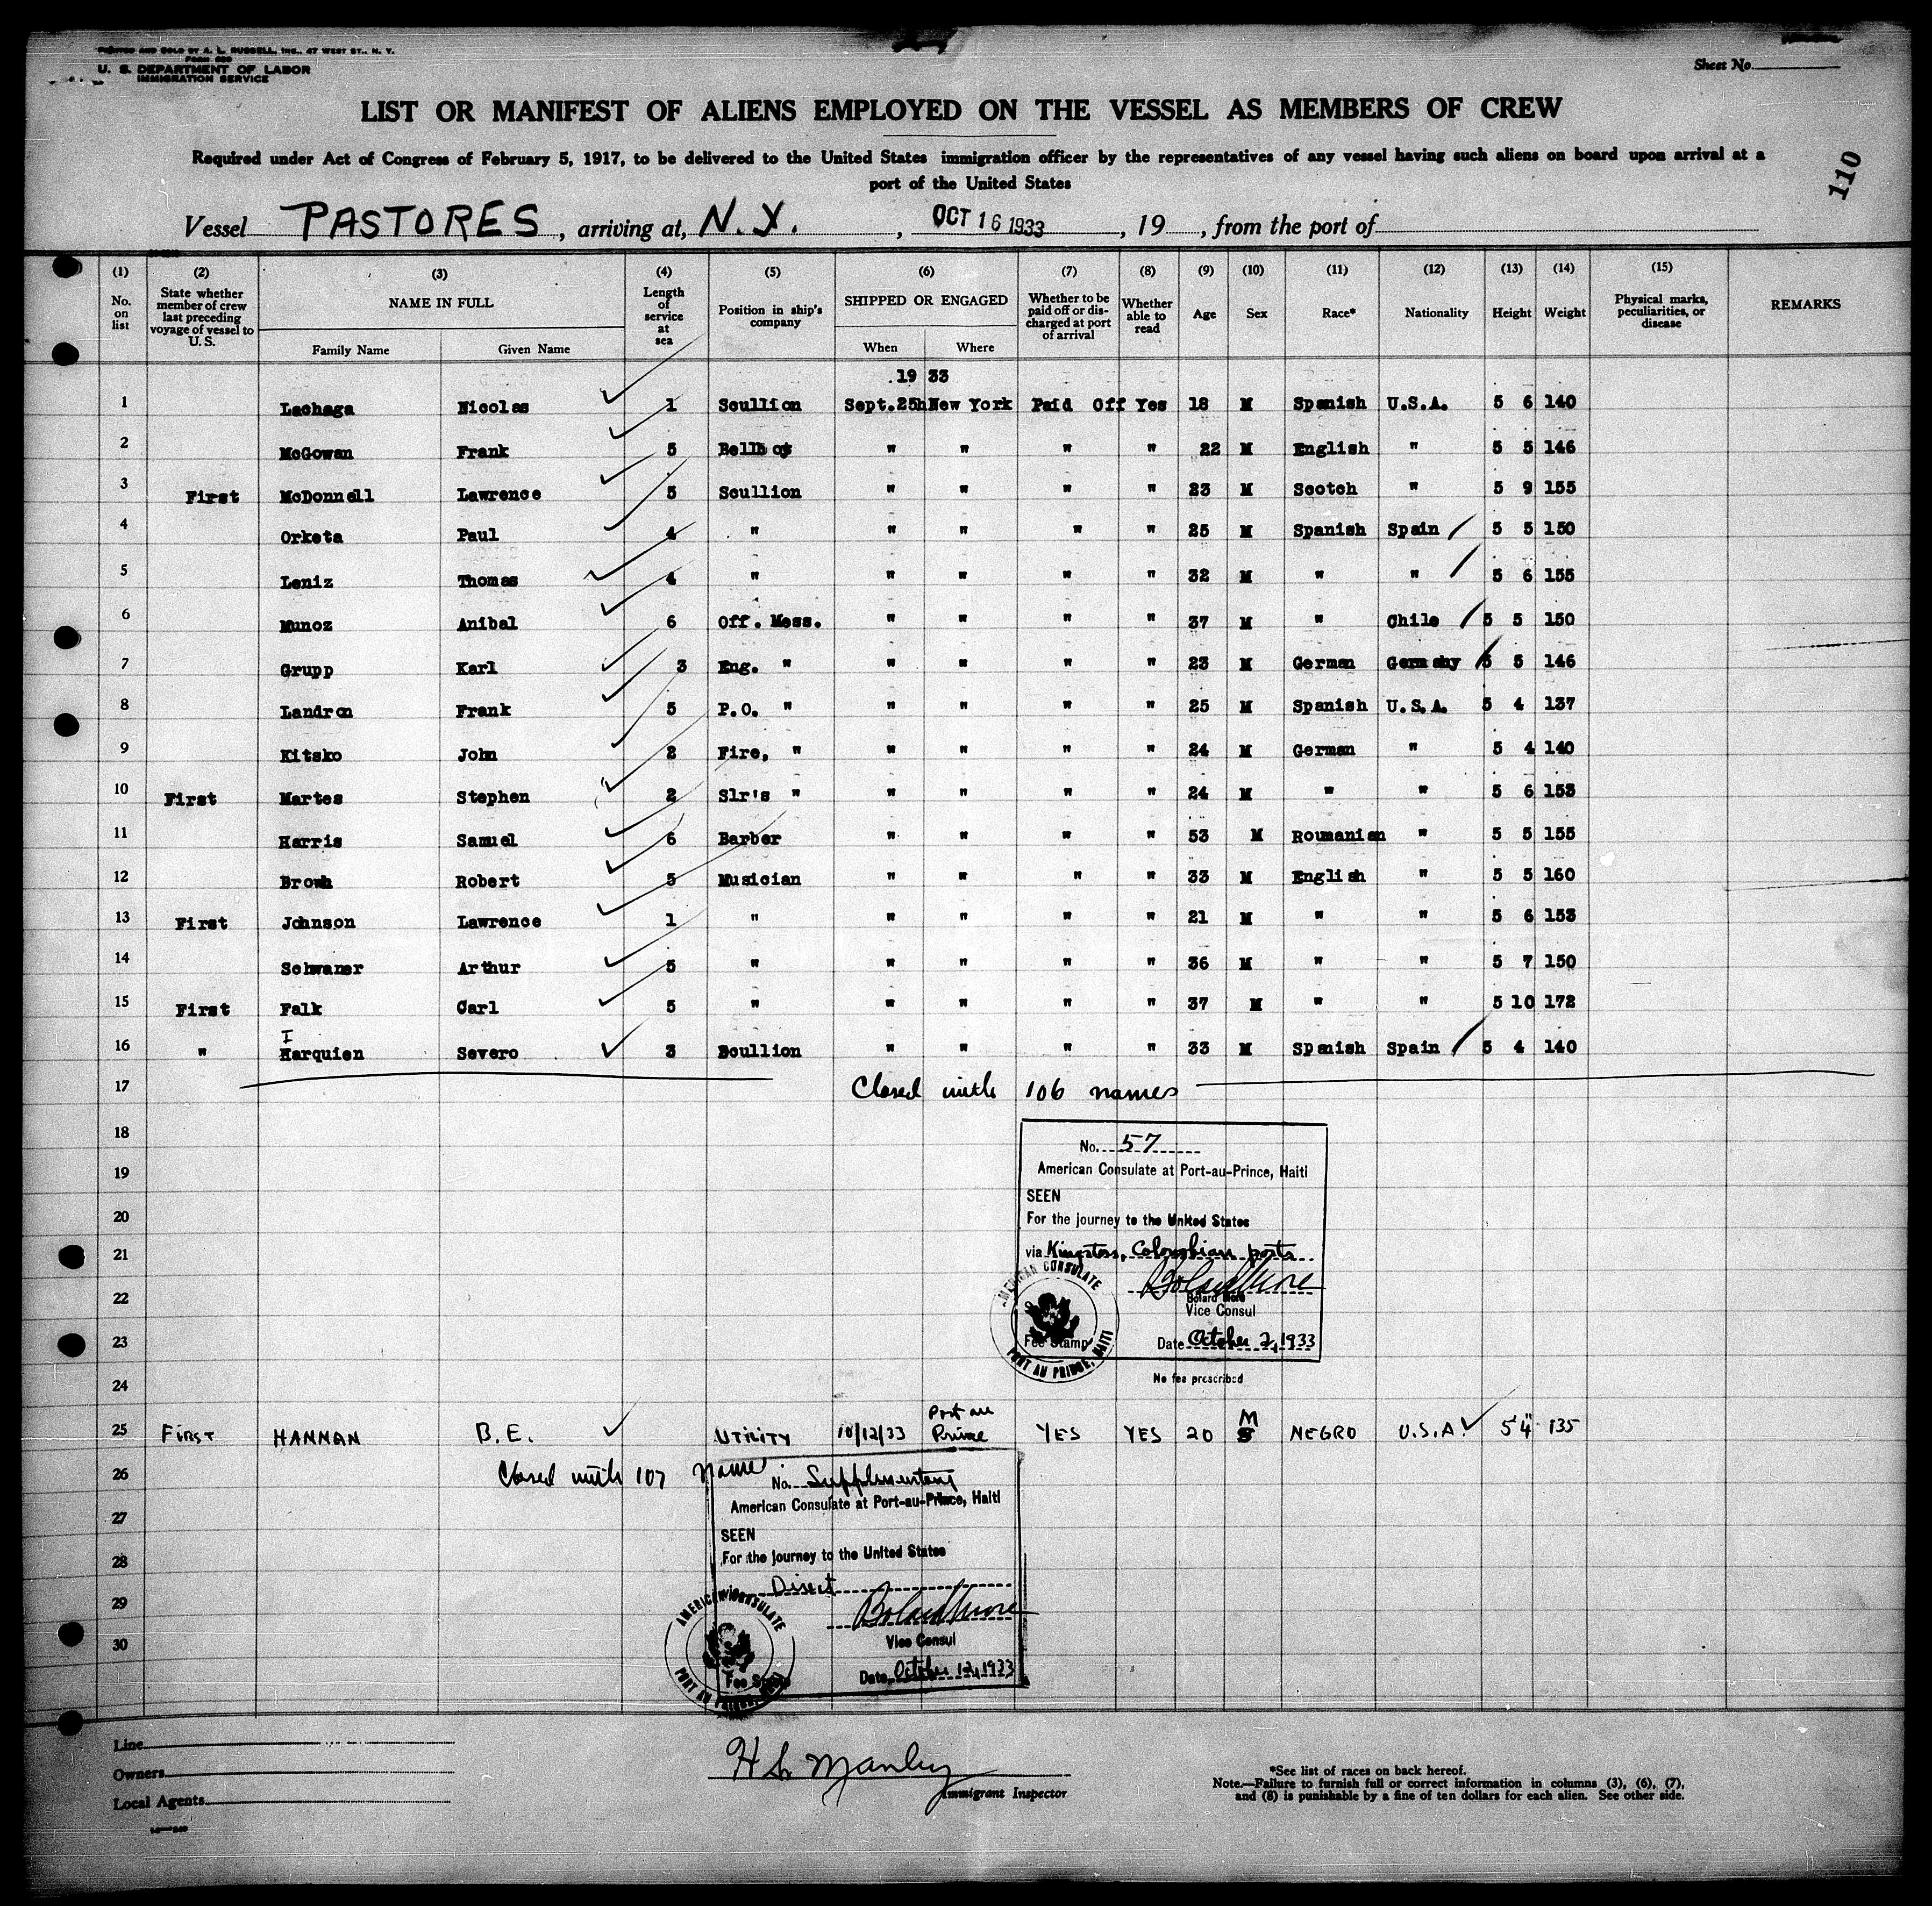 PRINTED AND SOLD BY A. L. RUSSELL, INC., 47 WEST ST., N. Y.
U. S. DEPARTMENT OF LABOR
IMMIGRATION SERVICE
Sheet No.
LIST OR MANIFEST OF ALIENS EMPLOYED ON THE VESSEL AS MEMBERS OF CREW
Required under Act of Congress of February 5, 1917, to be delivered to the United States immigration officer by the representatives of any vessel having such aliens on board upon arrival at a
port of the United States
110
Vessel PASTORES, arriving at, N.Y., OCT 16 1933, 19, from the port of
(1) (2) (3) (4) (5) (6) (7) (8) (9) (10) (11) (12) (13) (14) (15)
No. on list
State whether member of crew last preceding voyage of vessel to U. S.
NAME IN FULL
Family Name Given Name
Length of service at sea
Position in ship's company
SHIPPED OR ENGAGED
When Where
Whether to be paid off or discharged at port of arrival
Whether able to read
Age Sex Race* Nationality Height Weight
Physical marks, peculiarities, or disease
REMARKS
19 33
1 Lachaga Nicolas 1 Scullion Sept.25h New York Paid Off Yes 18 M Spanish U.S.A. 5 6 140
2 McGowan Frank 5 Bellboy " " " " 22 M English " 5 5 146
3 First McDonnell Lawrence 5 Scullion " " " " 23 M Scotch " 5 9 155
4 Orketa Paul 4 " " " " " 25 M Spanish Spain 5 5 150
5 Leniz Thomas 4 " " " " " 32 M " " 5 6 155
6 Munoz Anibal 6 Off. Mess. " " " " 37 M " Chile 5 5 150
7 Grupp Karl 3 Eng. " " " " " 23 M German Germany 5 5 146
8 Landron Frank 5 P.O. " " " " " 25 M Spanish U.S.A. 5 4 137
9 Kitsko John 2 Fire, " " " " " 24 M German " 5 4 140
10 First Martes Stephen 2 Slr's " " " " " 24 M " " 5 6 153
11 Harris Samuel 6 Barber " " " " 53 M Roumanian " 5 5 155
12 Brown Robert 5 Musician " " " " 33 M English " 5 5 160
13 First Johnson Lawrence 1 " " " " " 21 M " " 5 6 153
14 Schwaner Arthur 5 " " " " " 36 M " " 5 7 150
15 First Falk Carl 5 " " " " " 37 M " " 5 10 172
I
16 " Harquien Severo 3 Scullion " " " " 33 M Spanish Spain 5 4 140
17 Closed with 106 names
18
No. 57
19 American Consulate at Port-au-Prince, Haiti
SEEN
20 For the journey to the United States
21 via Kingston, Colombian ports
AMERICAN CONSULATE
22 Bolard More
Vice Consul
23 Fee Stamp Date October 2, 1933
PORT AU PRINCE, HAITI
24 No fee prescribed
25 First HANNAN B.E. UTILITY 10/12/33 Port au Prince YES YES 20 M NEGRO U.S.A. 5'4" 135
26 Closed with 107 name
No. Supplementary
27 American Consulate at Port-au-Prince, Haiti
SEEN
28 For the journey to the United States
via Direct
29 AMERICAN CONSULATE
Bolard More
30 Vice Consul
Fee Stamp Date October 12, 1933
PORT AU PRINCE, HAITI
Line
Owners
Local Agents
H. L. Manley
Immigrant Inspector
*See list of races on back hereof.
Note.—Failure to furnish full or correct information in columns (3), (6), (7),
and (8) is punishable by a fine of ten dollars for each alien. See other side.